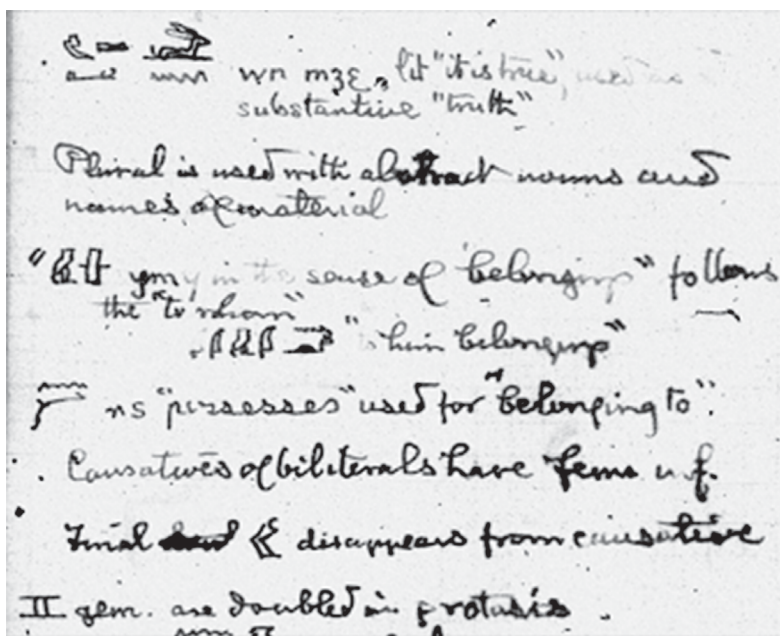 wn m3ε, lit "it is true", used as
substantive "truth"
Plural is used with abstract nouns and
names of material
" ymy in the sense of "belonging" follows
the "to whom"
"to him belongings"
ns "possesses" used for "belonging to".
Causatives of biliterals have fem. inf.
Final disappears from causative
II gem. are doubled in protasis.